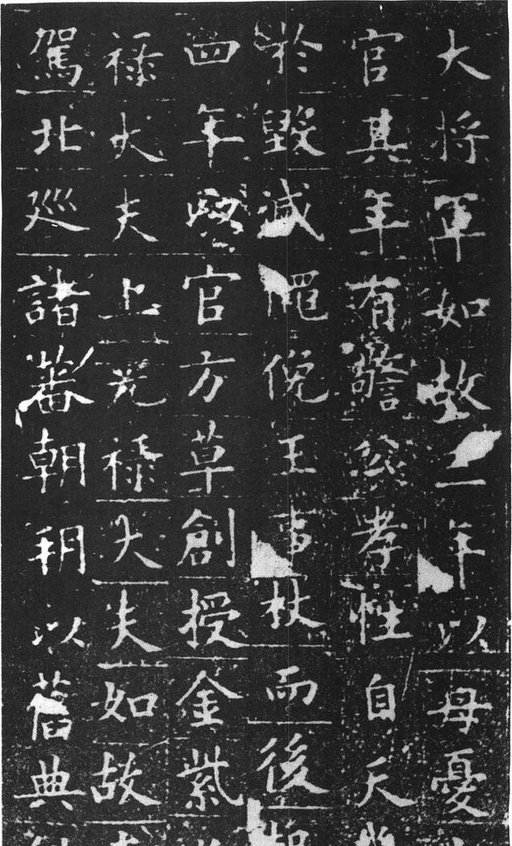 大將軍如故二年以母憂
官其年有警公孝性自天
於毀滅僶俛王事杖而後
四年官方草創授金紫
祿大夫上光祿大夫如故
駕北巡諸蕃朝以舊典